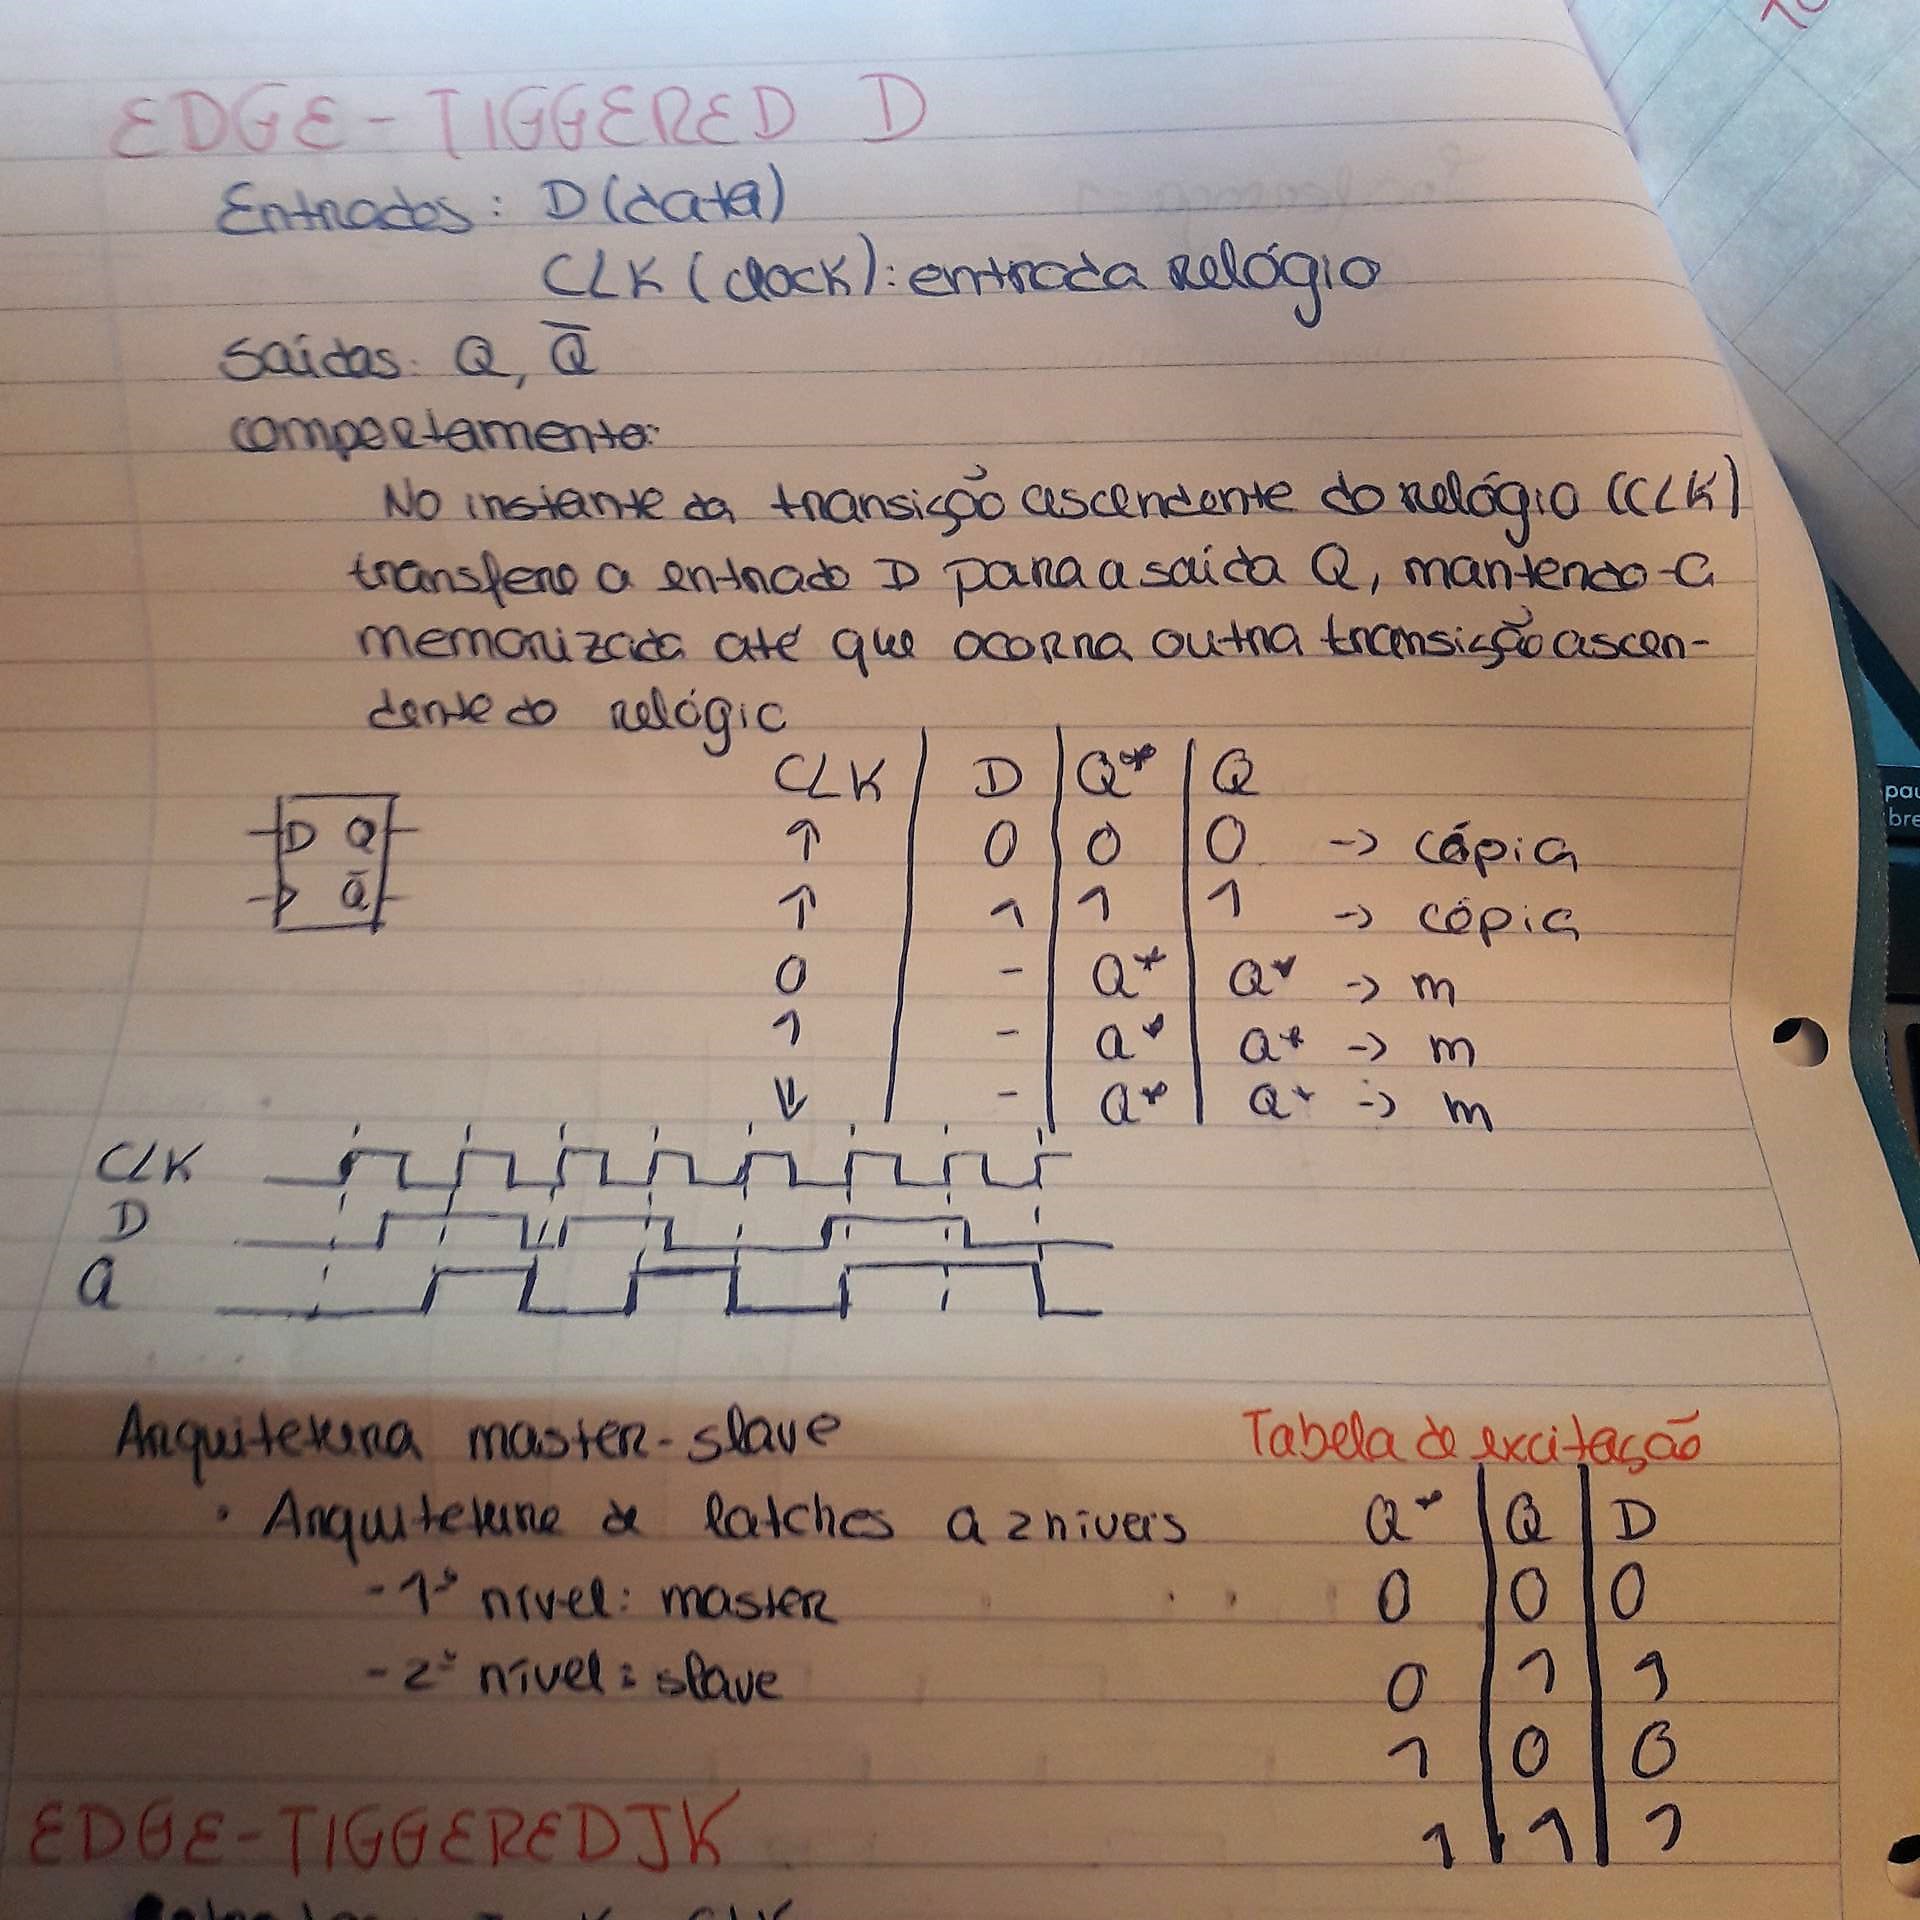 EDGE-TIGGERED D
Entradas: D (data)
CLK (clock): entrada relógio
Saídas: Q, Q̅
comportamento:
No instante da transição ascendente do relógio (CLK)
transfere a entrada D para a saída Q, mantendo-a
memorizada até que ocorra outra transição ascen-
dente do relógio
CLK D Q* Q
D Q
Q̅
↑ 0 0 0 -> cópia
↑ 1 1 1 -> cópia
0 - Q* Q* -> m
1 - Q* Q* -> m
↓ - Q* Q* -> m
pau
bre
CLK
D
Q
Arquitetura master-slave
Tabela de excitação
• Arquitetura de latches a 2 níveis
Q* Q D
- 1º nível: master
0 0 0
- 2º nível: slave
0 1 1
1 0 0
1 1 1
EDGE-TIGGERED JK